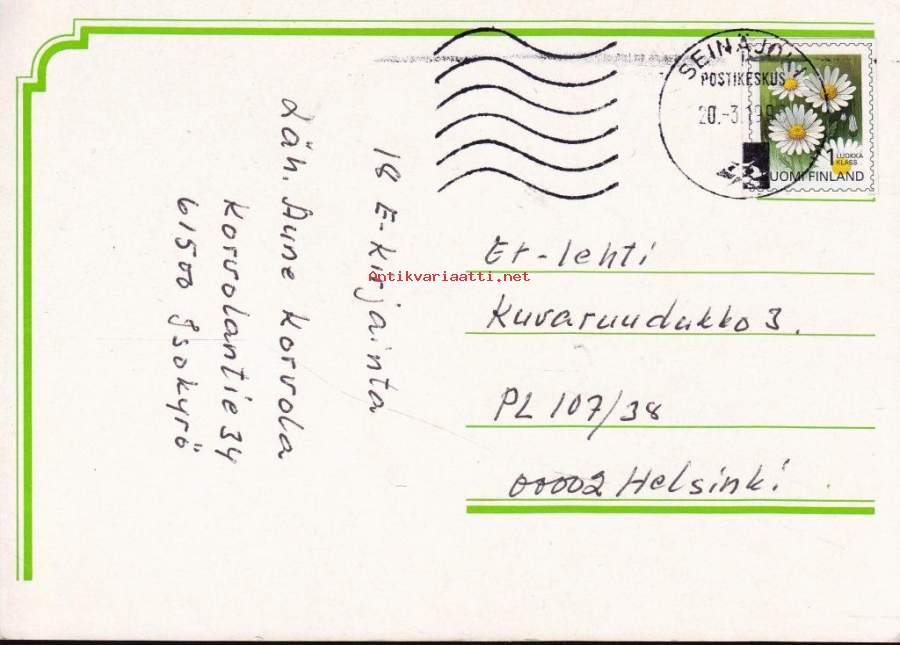 SEINÄJOKI
POSTIKESKUS
20.-3.199
1 LUOKKA
KLASS
SUOMI FINLAND
18 E-kirjainta
Läh. Aune Korvola
Korvolantie 34
61500 Isokyrö
Antikvariaatti.net
Et-lehti
Kuvaruudukko 3.
PL 107/38
00002 Helsinki